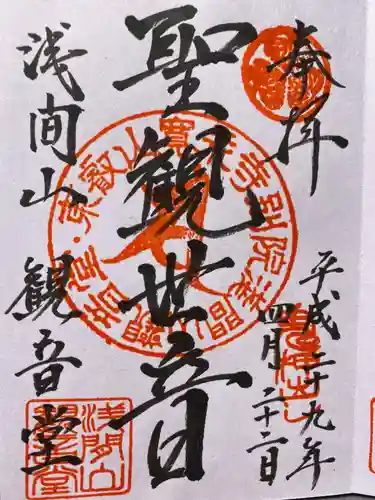 奉拝
平成二十九年
四月二十二日
聖観世音
浅間山 観音堂
浅間山
観音堂